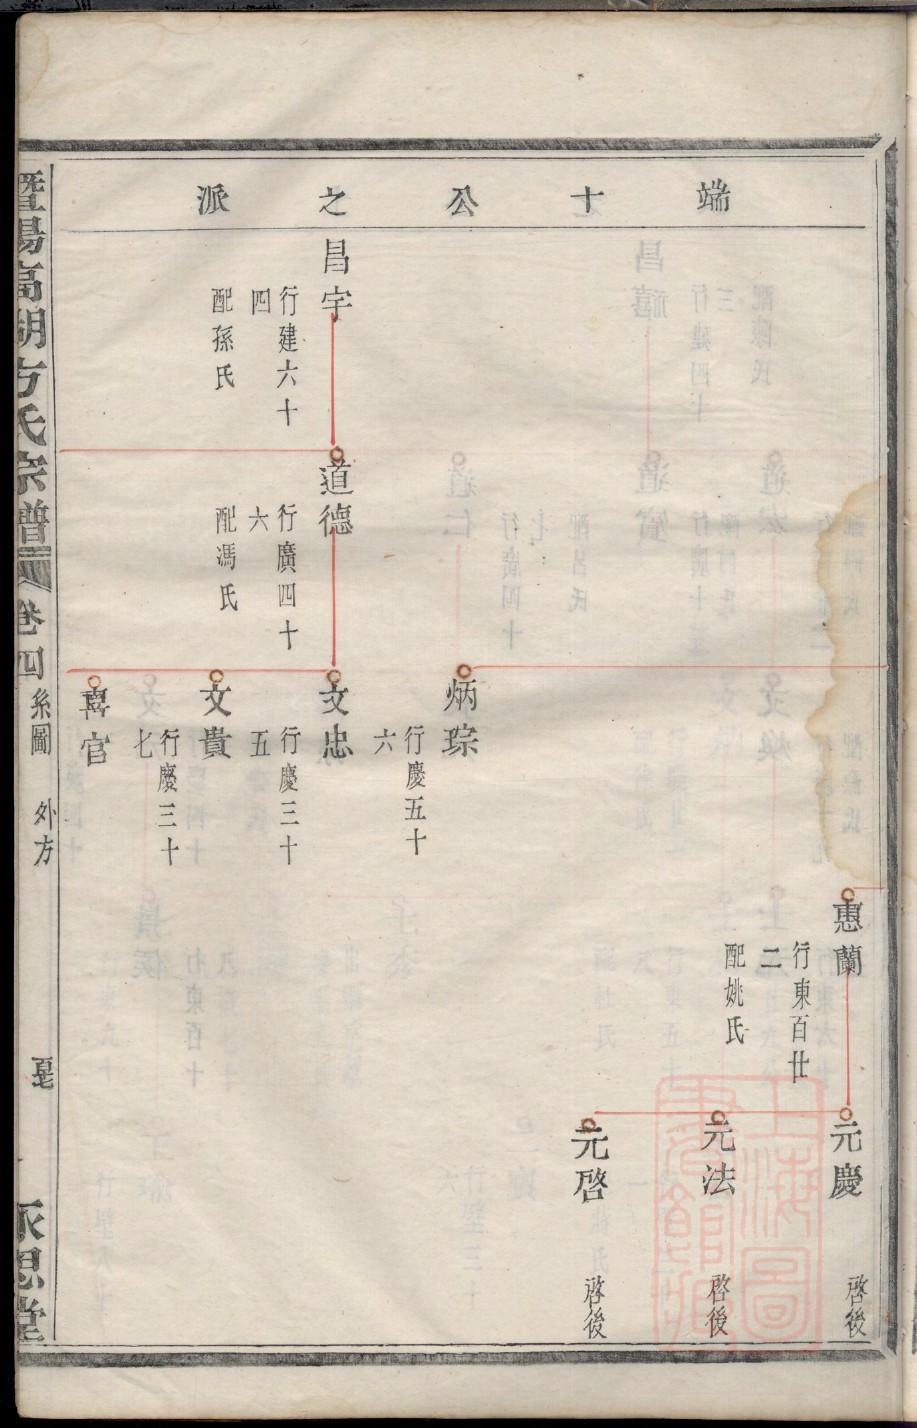 端十公之派
惠蘭
行東百廿
二
配姚氏
元慶
啓後
元法
啓後
元啓
啓後
炳琮
行慶五十
六
昌宇
行建六十
四
配孫氏
道德
行廣四十
六
配馮氏
文忠
行慶三十
五
文貴
行慶三十
七
喜官
暨陽高湖方氏宗譜
卷四
系圖
外方
永思堂
上海圖書館藏